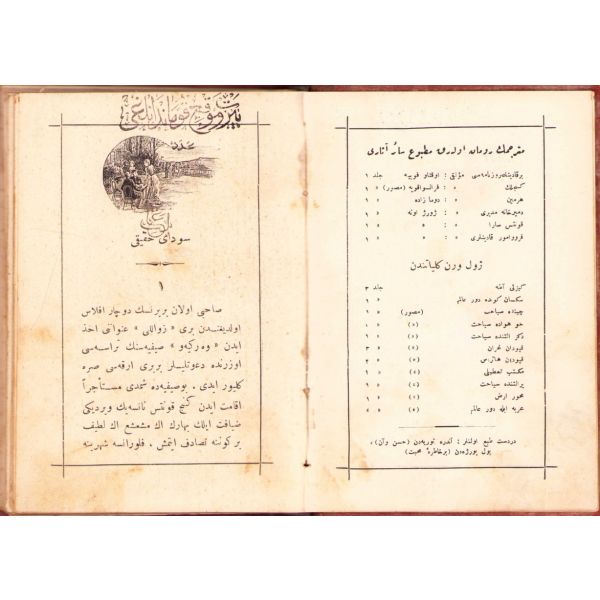 مترجمك رومان اولرق مطبوع سائر آثاری
برقادینك روزنامه‌سی مؤلفی : اوقتاو فوییه جلد ١
كنجلك » : فرانسواقوپه (مصور) » ١
هرمین » : دوما زاده » ١
دمیرخانه مدیری » : ژورژ اونه » ١
قونتس سارا » : » » ١
قروومور قادینلری » : » » ١
ژول ورن كلیاتندن
كیزلی آطه جلد ٣
سكسان كونده دور عالم » ١
چینده سیاحت (مصور) » ١
جو هواده سیاحت (») » ١
دكز التنده سیاحت (») » ٦
قپودان غران (») » ٣
قپودان هاتراس (») » ٢
مكتب تعطیلی (») » ١
یر التنده سیاحت (») » ١
محور ارض (») » ١
عربه ایله دور عالم (») » ٤
دردست طبع اولنلر : آندره توریه‌دن (حسن وآن) ،
پول بورژه‌دن (برخاطرهٔ محبت)
سودای حقیقی
١
صاحبی اولان بربرنسك دوچار افلاس
اولدیغندن بری « زواللی » عنوانی اخذ
ایدن « وه‌ركیه‌و » صیفیه‌سنك تراسه‌سی
اوزرنده دعوتلیلر بربری ارقه‌سی صره
كلیور ایدی . بوصیفیه‌ده شمدی مستأجراً
اقامت ایدن كنج قونتس نانسه‌یك ویردیكی
ضیافت ایلك بهارك اك مشعشع اك لطیف
بر كوننه تصادف ایتمش ، فلورانسه شهرینه